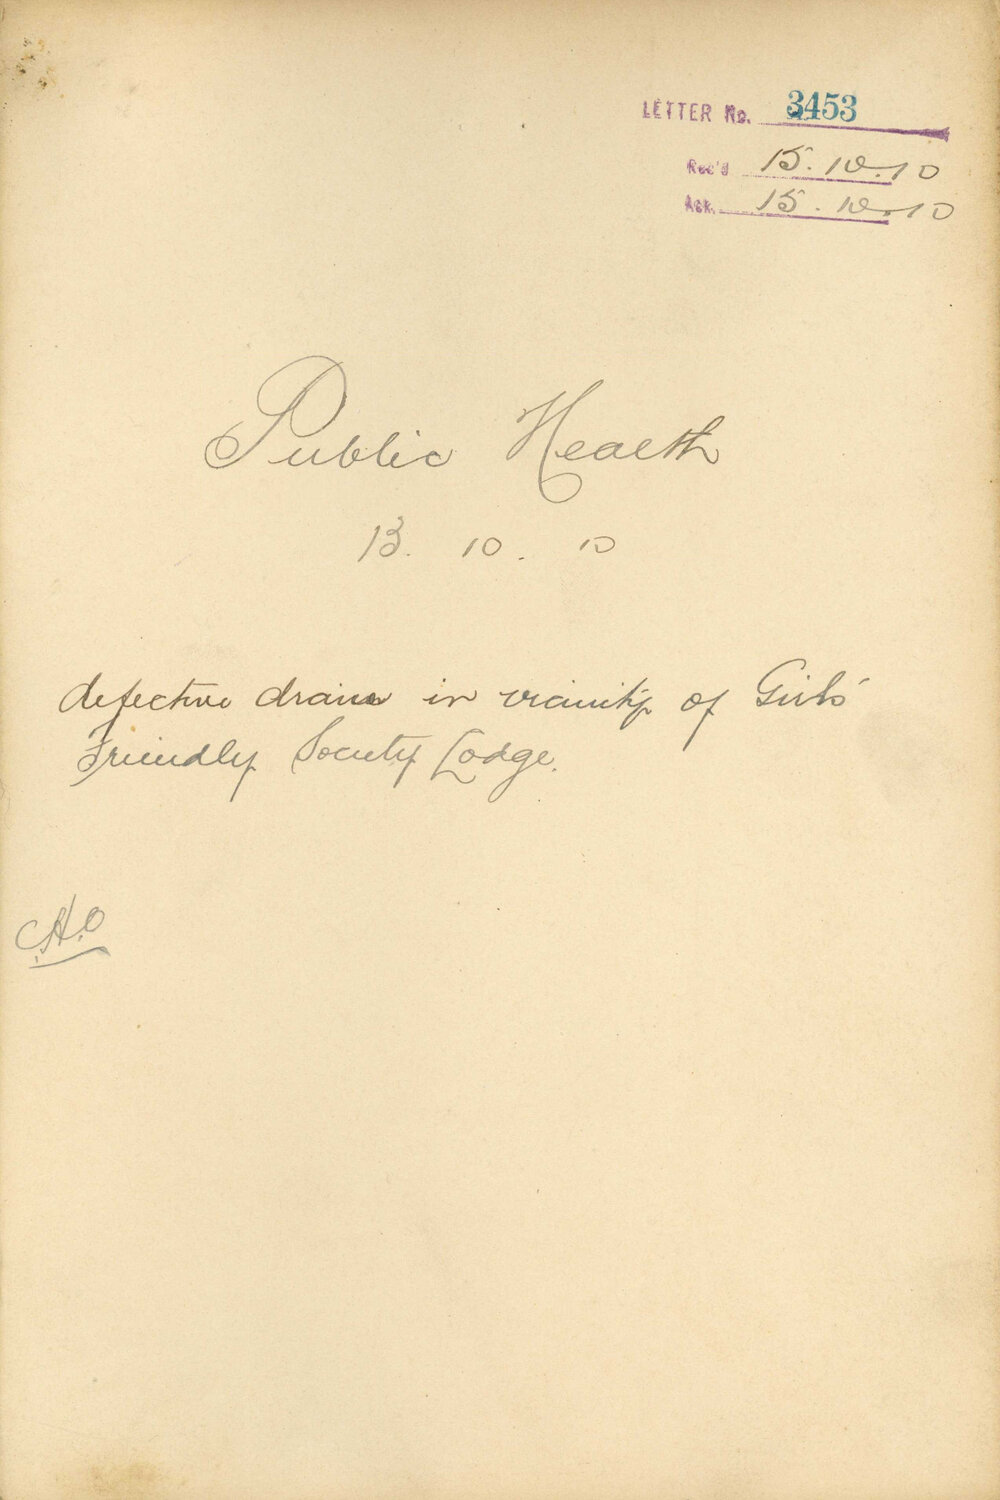 LETTER No. 3453
Rec'd 15.10.10
Ack. 15.10.10
Public Health
13. 10. 10
defective drains in vicinity of Girls'
Friendly Society Lodge.
C.H.O